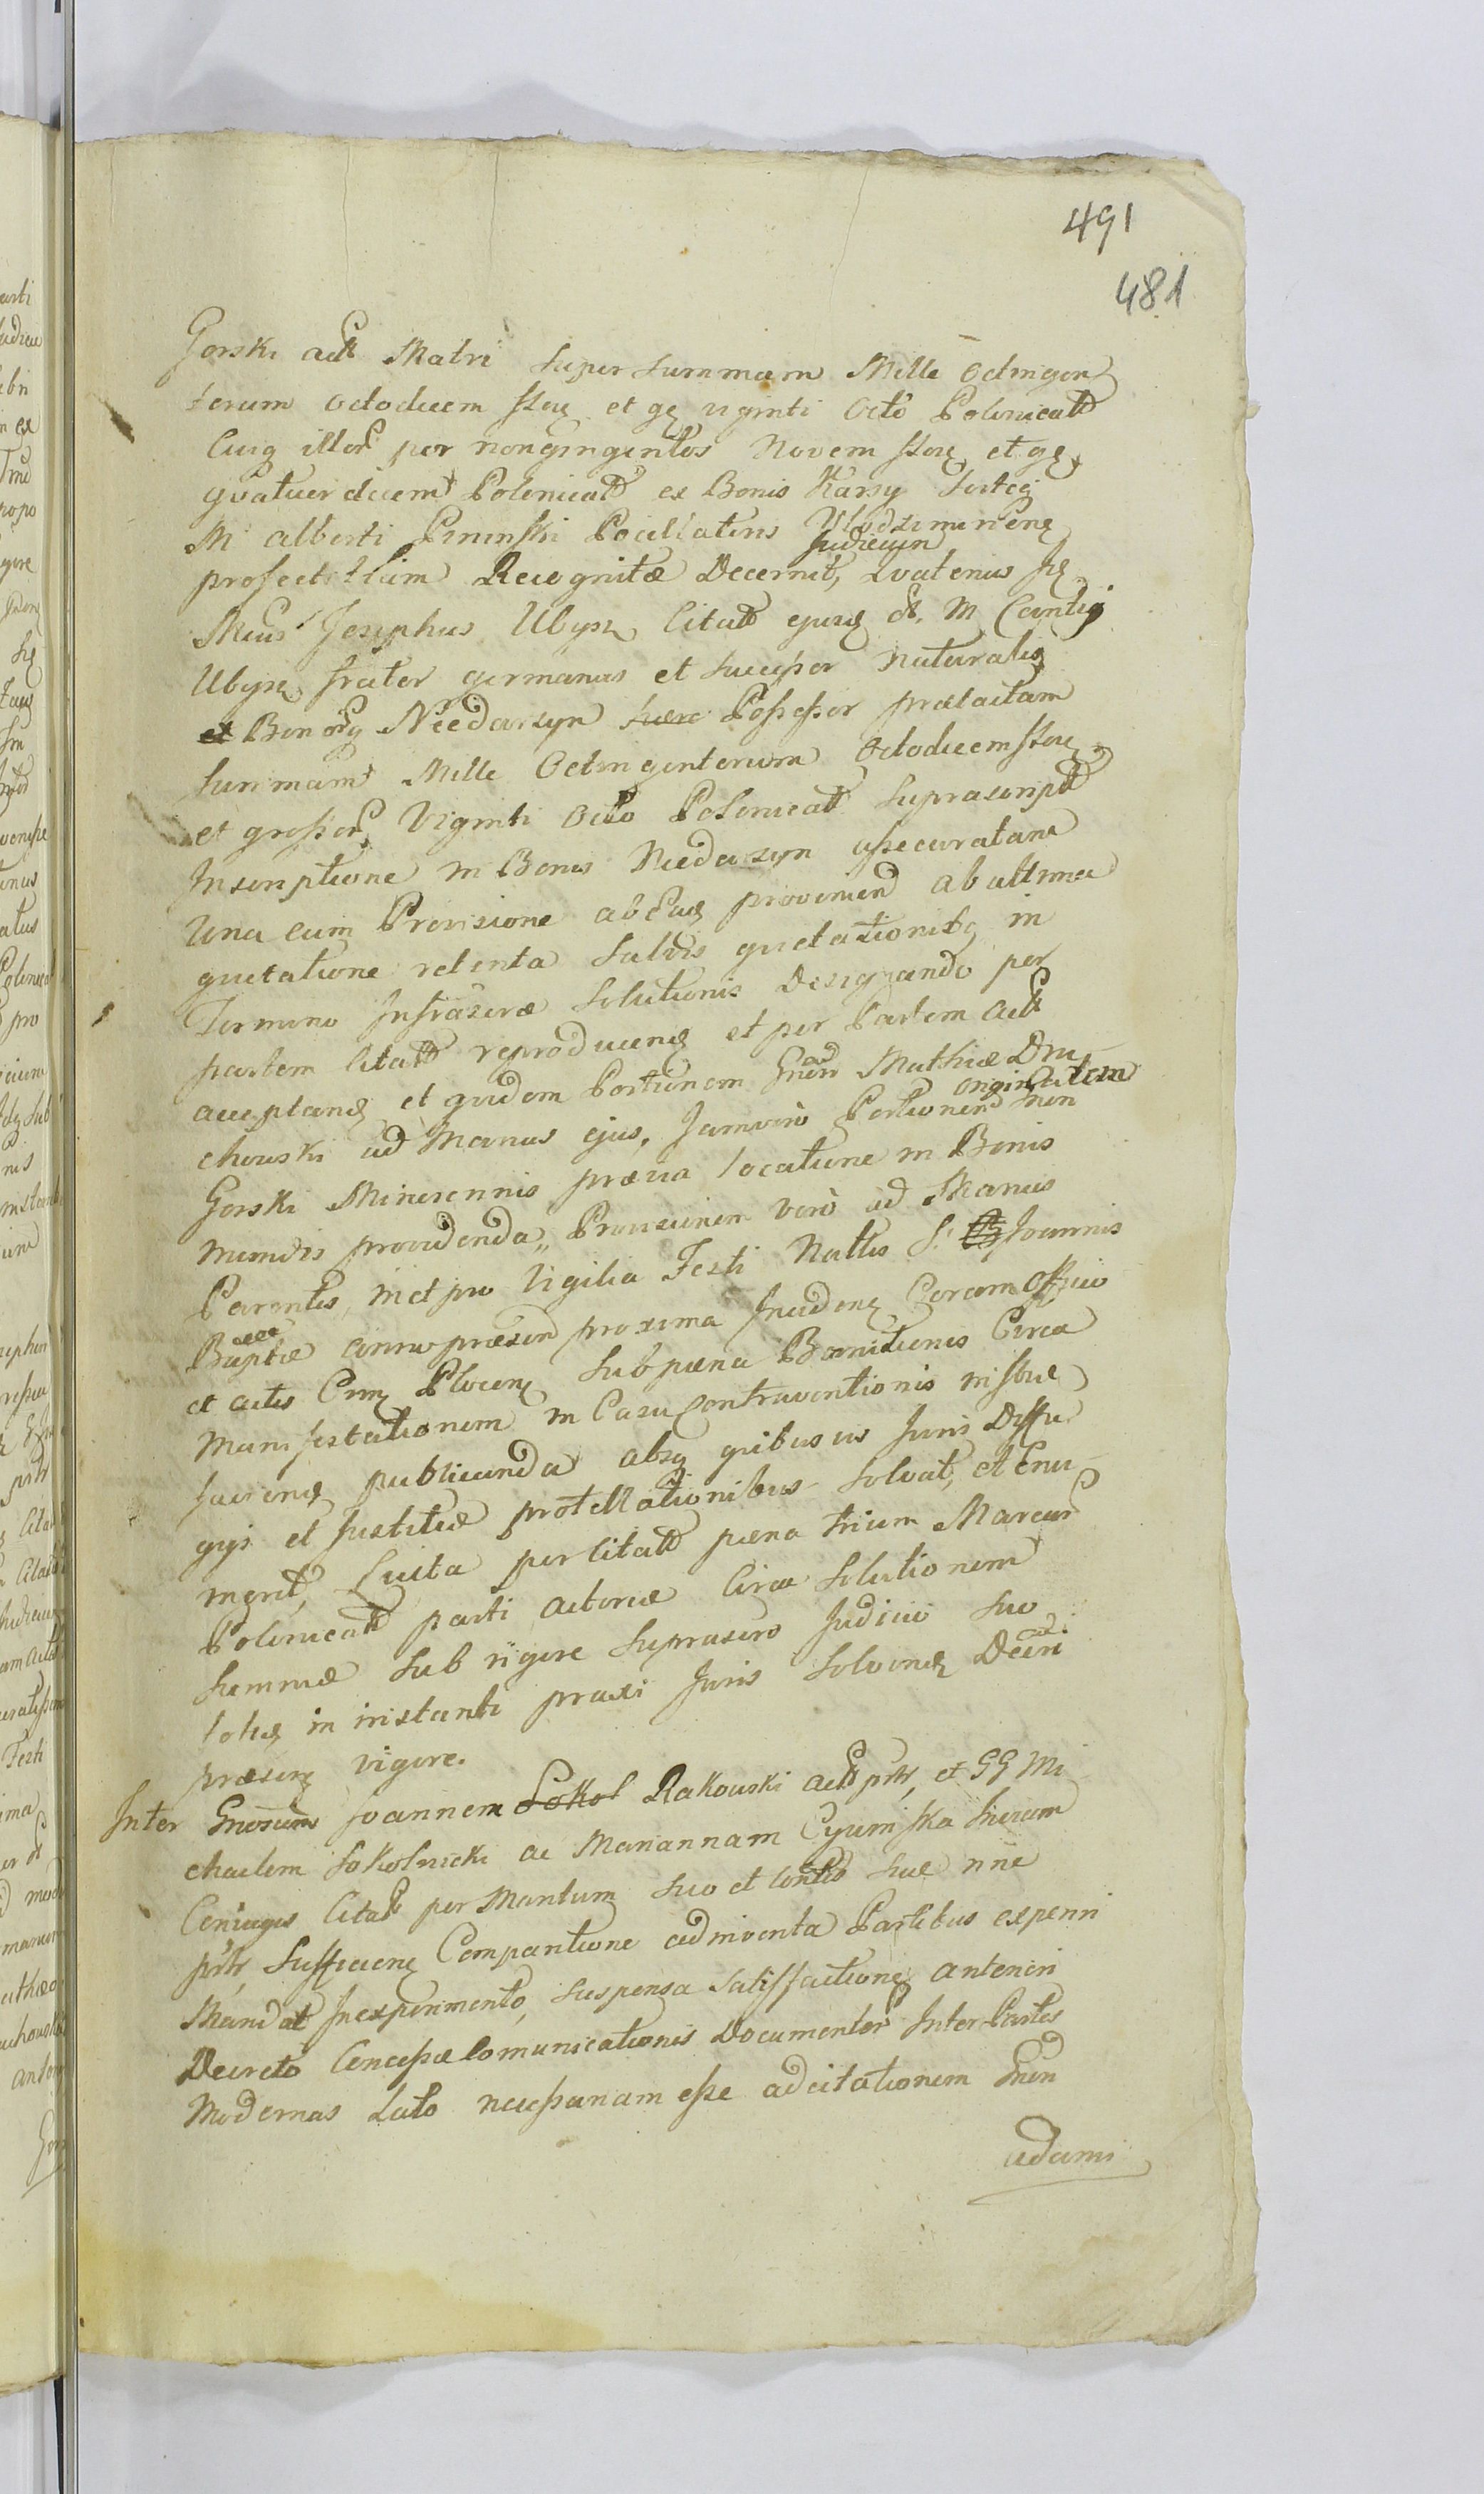 491
481
Gorski act Matri super summam Mille Octingen
torum octodecem flor et gr viginti Octo Polonicat
Cujq illor per nongingentos Novem flor et gr
quatuor decem Polonicat ex Bonis Karsy
M Alberti Pininski Pocillatoris Wlodzimirien
profect Recognitæ Decernit, Judicium Quatenus
Josephus Ubysz Citat ejusd M
Ubysz frater germanus et successor naturalis
et Bonorq Niedarzyn Possessor prælactam
summam Mille Octingentorum Octodecem flor
et grossor Viginti Octo Polonicat suprascript
Inscriptione in Bonis Niedarzyn assecuratam
Una cum Provisione ab Eade provenien ab ultima
quetatione retenta salvis quetationibq in
Termino Infrascræ solutionis Designando per
partem Citat reproducend et per Partem Act
acceptand et quidem Portionem Gnon Mathiæ Dru
chowski ad Manus ejus, Jamvero Portionem originalem
Gorski Minorennis prævia locatione in Bonis
Mundis providenda, Provisionem vero ad Manus
Parentis, in et pro Vigilia Festi Natlis S. Joannis
Baptæ anno præsen proxima Inciden Coram Officio
et actis Plocen sub pæna Banitionis Circa
Manifestationem in Casu Contraventionis
publicanda absq quibusvis Juris Diffu
gijs et Justitiæ protellationibus solvat, et Enu
meret, Luita per Citat pæna trium Marcar
Polonicat parti actoreæ Circa Solutionem
summæ sub rigore suprascro Judicio suo
in instanti praxi Juris solvend Decri
præsen vigore.
Inter Gnosum Joannem Sokol Rakowski act prtr, et GG Mi
chaelem Sokolnicki ac Mariannam
Conjuges Citat per Mantum suo et Contlis suæ nne
prtr, Sufficien Comparitione adinventa Partibus experiri
Mandat Inexperimento, suspensa Satisfactione anteriori
Decreto Concessæ Comunicationis Documentor Inter Partes
Modernas Lato necessariam esse adcitationem Gnon
adami